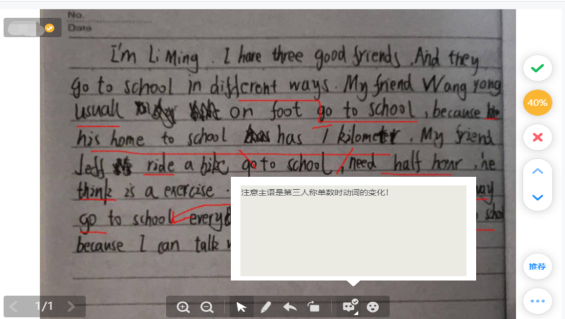 No.
Date
I'm Li Ming. I have three good friends. And they
go to school in different ways. My friend Wang yong
usuall on foot go to school, because
his home to school has 1 kilometr. My friend
Jeff ride a bike go to school, need half hour, he
think is a exercise.
way
go to school every
because I can talk
注意主语是第三人称单数时动词的变化!
40%
推荐
1/1